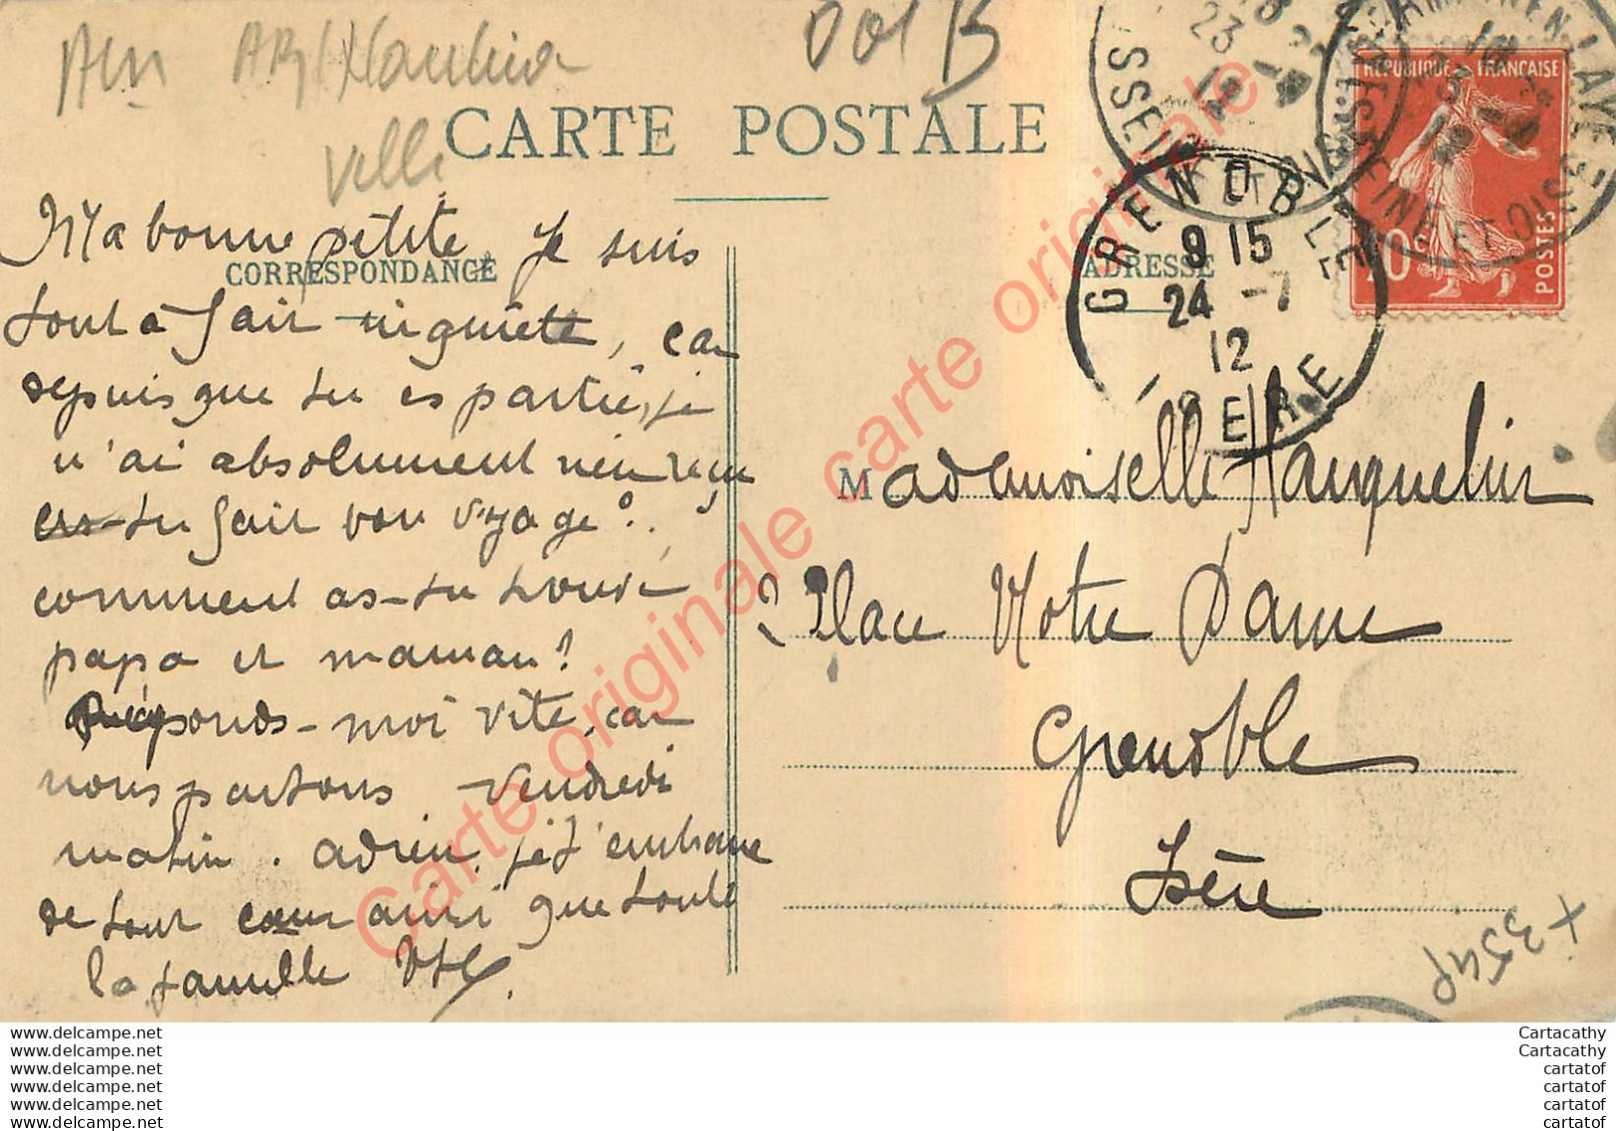 Vol B
CARTE POSTALE
CORRESPONDANCE
ADRESSE
Ma bonne petite, je suis
tout à fait inquiète, car
depuis que tu es partie, je
n'ai absolument rien reçu
as-tu fait bon voyage?
comment as-tu trouvé
papa et maman?
Réponds-moi vite, car
nous partons vendredi
matin. adrien, je t'embrasse
de tout cœur ainsi que toute
la famille
REPUBLIQUE FRANÇAISE
10c
POSTES
ST GERMAIN EN LAYE
SEINE ET OISE
GRENOBLE
9 15
24 -7
12
ISERE
Mademoiselle Hauquelin
2 Place Notre Dame
Grenoble
Isère
Carte originale carte originale
www.delcampe.net
www.delcampe.net
www.delcampe.net
www.delcampe.net
www.delcampe.net
www.delcampe.net
Cartacathy
Cartacathy
cartatof
cartatof
cartatof
cartatof